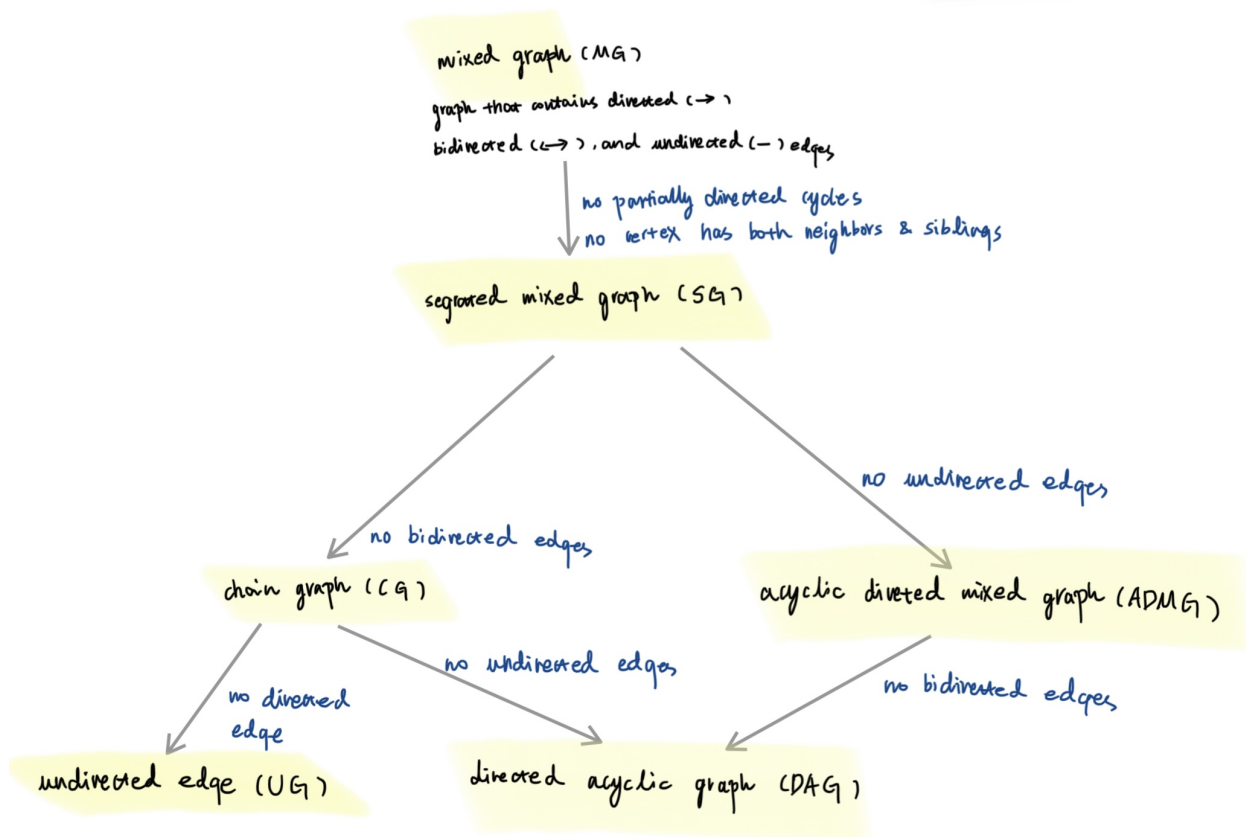 mixed graph (MG)
graph that contains directed (→)
bidirected (↔), and undirected (−) edges
no partially directed cycles
no vertex has both neighbors & siblings
segrated mixed graph (SG)
no undirected edges
no bidirected edges
chain graph (CG)
acyclic diveted mixed graph (ADMG)
no undirected edges
no bidirected edges
no directed
edge
undirected edge (UG)
directed acyclic graph (DAG)